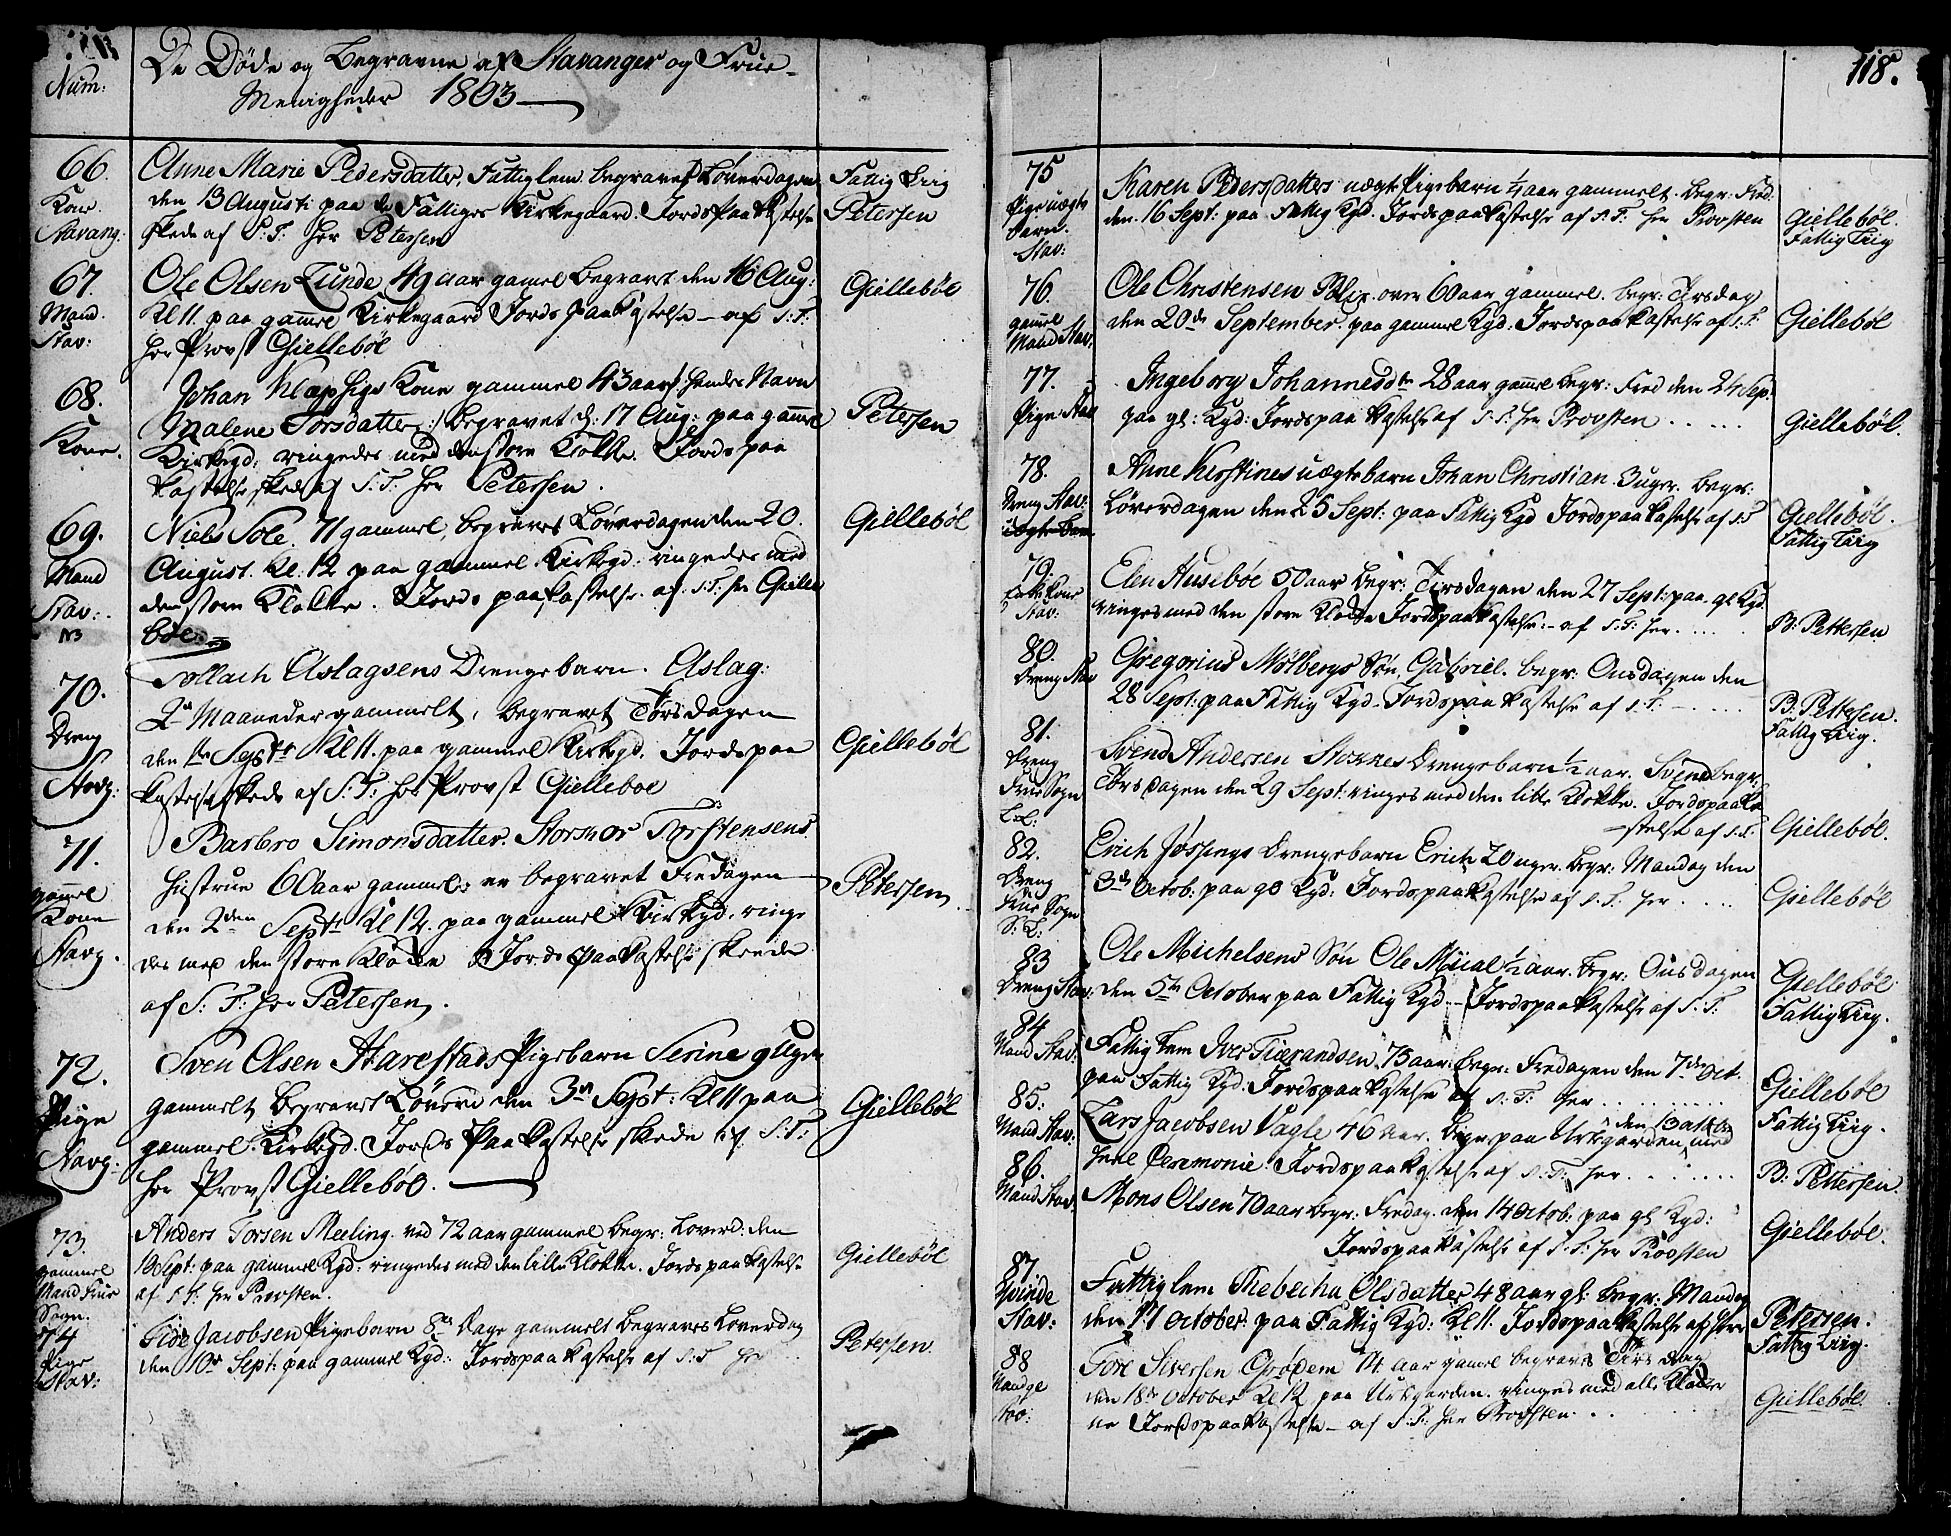 Num:
De Døde og Begravne af Stavanger og Frue-
Menigheder 1803
66.
Kone
Stavang:
Anne Marie Pedersdatter, Fattiglem begravet Løverdagen
den 13 Augusti paa de Fattiges Kirkegaard. Jords Paakastelse
skede af S: T: Her Petersen
Fattig Liig
Petersen
67
Mand.
Stav:
Ole Olsen Lunde 49 aar gamel Begravet den 16 Aug:
Kl 11. paa gammel Kirkegaard Jords paakastelse – af S: T:
Her Provst Giellebøl
Giellebøl
68.
Kone.
Johan Klapsigs Kone gammel 43 aar /: hendes Navn
Malene Torsdatter :/ begravet d: 17 Aug: paa gammel
Kirkegd: ringedes med den store Klokke. Jords paa
kastelse skede af S: T: Her Petersen.
Petersen
69.
Mand
Stav:
Niels Sole. 71 gammel, begravet Løverdagen den 20.
August. Kl: 12 paa gammel Kirkegd: ringedes med
den store Klokke. Jords paakastelse af S: T: Hr Gielle
bøl.
Giellebøl
70.
Dreng
Stavg:
Tollach Aslagsens Drengebarn. Aslag:
2 Maaneder gammelt, begravet Torsdagen
den 1te Septr Kl 11. paa gammel Kirkegd. Jordspaa
kastelse skede af S: T: Her Provst Giellebøl
Giellebøl
71.
gammel
Kone
Stavg.
Barbro Simonsdatter. Stormor Torstensens
Hustrue 60 aar gammel: er begravet Fredagen
den 2den Septr Kl 12. paa gammel Kirkegd. ringe
des med den store Klokke Jords Paakastelse skeede
af S: T: Her Petersen.
Petersen
72.
Pige
Stavg:
Sven Olsen Harestads Pigebarn Serine 9 Uger
gammelt, begravet Løverd den 3 Sept: Kl 11 paa
gammel Kirkegd. Jords Paakastelse skede af S: T:
Her Provst Giellebøl.
Giellebøl
73.
gammel
Mand Frue
Sogn.
Anders Torsen Meeling ved 72 aar gammel begr: Løverd: den
10 Sept: paa gammel Kgd: ringedes med den lille Klokke. Jords paakastelse
af S: T: Hr Provsten.
Giellebøl
74
Pige
Stav:
Jacobsen Pigebarn 8 Dage gammelt begravet Løverdag
den 10 Sept: paa gammel Kgd: Jordspaakastelse af S: T: Her
Petersen
118.
75
Pige uægte
barn.
Stav:
Karen Pedersdatters uægte Pigebarn 1/4 aar gammelt. begr: Fred:
den 16 Sept: paa Fattig Kgd. Jordspaakastelse af S: T: Her Provsten
Giellebøl.
Fattig Liig
76.
gammel
Mand Stav.
Ole Christensen Blix over 60 aar gammel. begr: Tirsdag
den 20de September paa gammel Kgd. Jordspaakastelse af S: T:
Giellebøl
77.
Pige Stav
Ingeborg Johannesdtr 28 aar gammel begr: Fred den 24 Sep:
paa gl: Kgd: Jordspaakastelse af S: T: Her Provsten . . . . .
Giellebøl.
78.
Dreng Stav:
uægte barn
Anne Kirstines uægte barn Johan Christian. 3 uger. begr:
Løverdagen den 25 Sept: paa Fattig Kgd Jordspaakastelse af S: T
Giellebøl.
Fattig Liig
79.
Kone
Stav:
Elen Husebøe 50 aar begr: Tirsdagen den 27 Sept: paa gl Kgd.
ringes med den store Klokke Jordspaakastelse – af S: T: Her.....
B: Pettersen
80.
Dreng Stav
Gregorius Mølbergs Søn, Gabriel. begr: Onsdagen den
28 Sept: paa Fattig Kgd – Jordspaakastelse af S: T: – . . . . .
B: Pettersen.
Fattig Liig.
81.
Dreng
Frue Sogn
Svend Andersen Stornes Drengebarn 1/2 aar. Svend begr:
Torsdagen den 29 Sept: ringes med den lille Klokke. Jordspaaka
– stelse af S: T:
Giellebøl.
82.
Dreng
Frue Sogn
Erich Jøssings Drengebarn Erich 20 uger. begr: Mandag den
3de Octob: paa gl Kgd: Jordspaakastelse af S: T: Her . . . .
Giellebøl
83
Dreng Stav:
Ole Michelsens Søn Ole 1/2 aar. begr: Onsdagen
den 5te October paa Fattig Kgd: – Jordspaakastelse af S: T:
Giellebøl
Fattig Liig.
84
Mand Stav:
Fattig Lem Iver Tierandsen, 75 aar: begr: Fredagen den 7den Oct.
paa Fattig Kgd: Jordspaakastelse af S: T: Her . . . . . . . .
Giellebøl
Fattig Liig.
85:
Mand Stav:
Lars Jacobsen Vagle 46 aar. begr: paa Urkgarden, den 13 Octbr med
heel Ceremonie. Jordspaakastelse af S: T: Her . . . . . . .
B: Pettersen.
86.
Mand Stav.
Mons Olsen 70 aar begr: Fredag. den 14 Octob: paa gl Kgd:
Jordspaakastelse af S: T: Hr Provsten
Giellebøl.
87
Qvinde
Stav:
Fattig lem Rebecha Olsdatter 48 aar gl: begr: Mandag
den 17 October. paa Fattig Kgd: Kl 11. Jordspaakastelse af Herr
Petersen.
Fattig Liig.
88
Mand
Tore Siversen Grødem aar gamel begravet Tirsdag
den 18de October Kl 12 paa Urkgarden. ringes med alle Klokker
ne Jordspaakastelse – af S: T: Her Provsten. . .
Giellebøl.